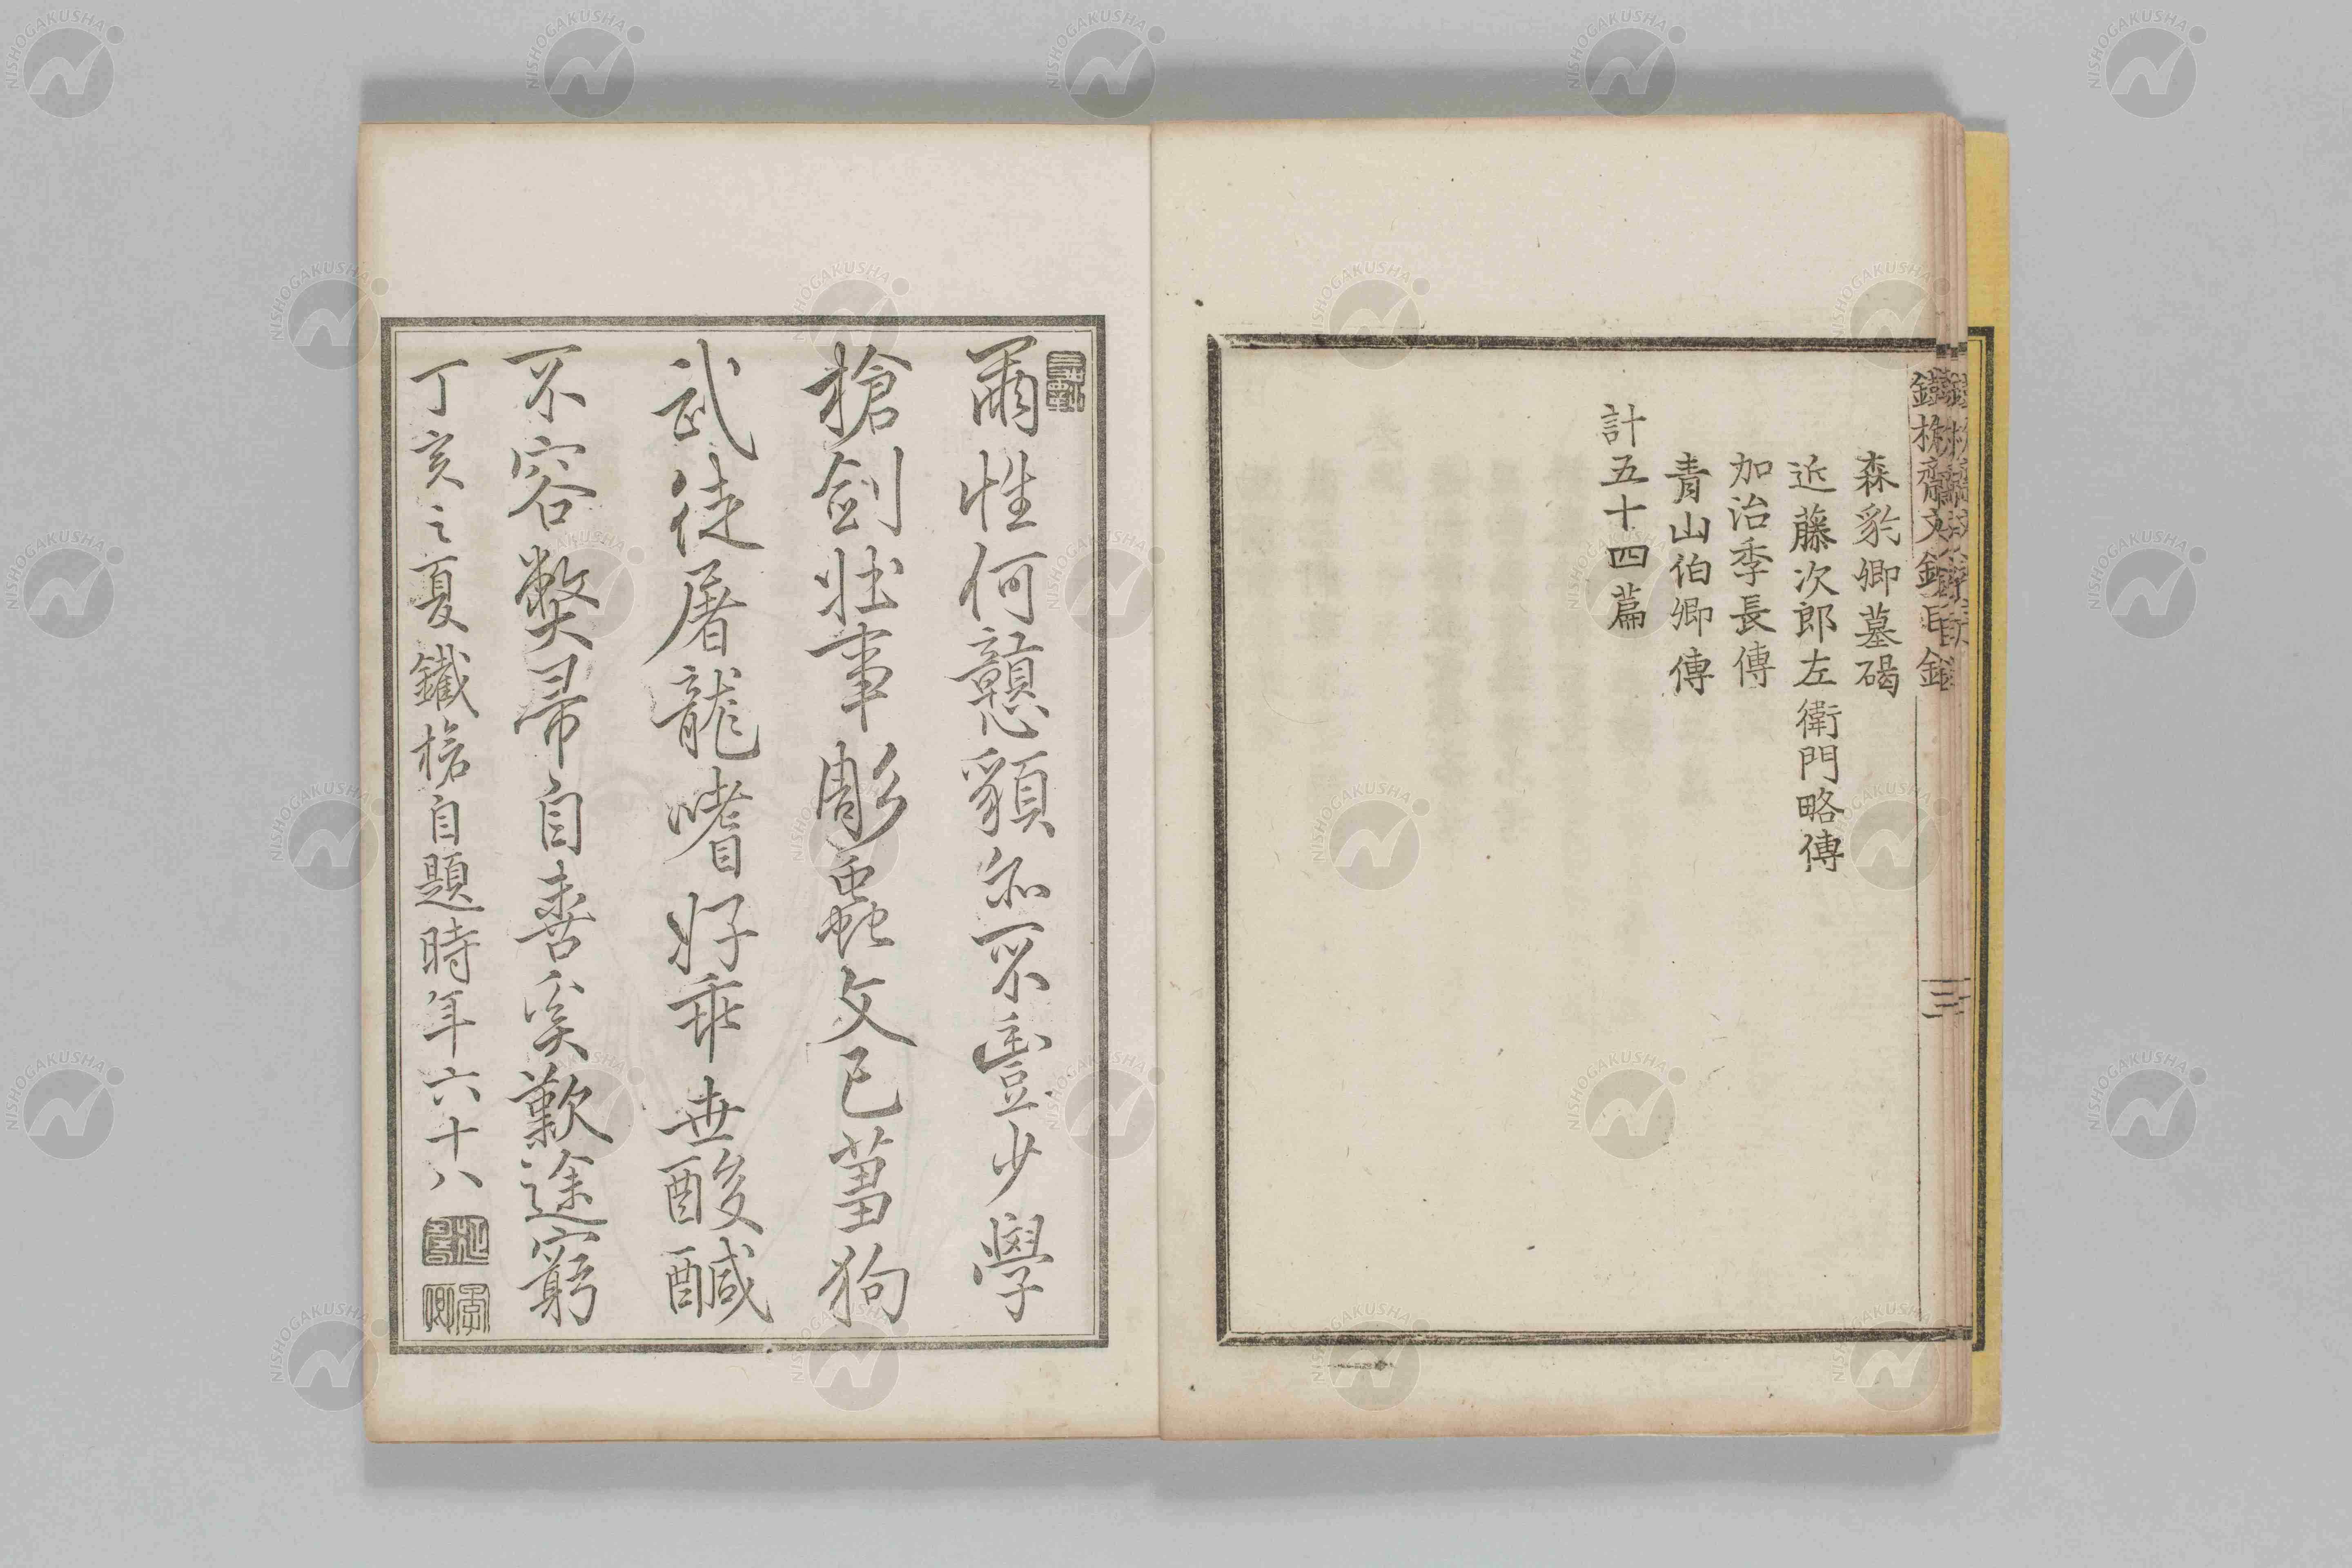 鐵槍齋文鈔目錄
三
森豹卿墓碣
近藤次郎左衛門略傳
加治季長傳
青山伯卿傳
計五十四篇
爾性何戇貌亦不豊少學
槍劍壯事彫蟲文已芻狗
武徒屠龍嗜好乖世酸醎
不容獘帚自善奚歎途窮
丁亥之夏鐵槍自題時年六十八
NISHOGAKUSHA